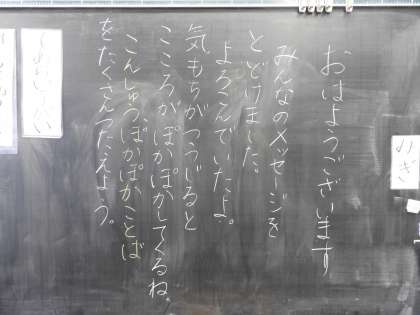 おはようございます
みんなのメッセージを
とどけました。
よろこんでいたよ。
気もちがつうじると
こころがぽかぽかしてくるね。
こんしゅうはぽかぽかことば
をたくさんつたえよう。
みぎ